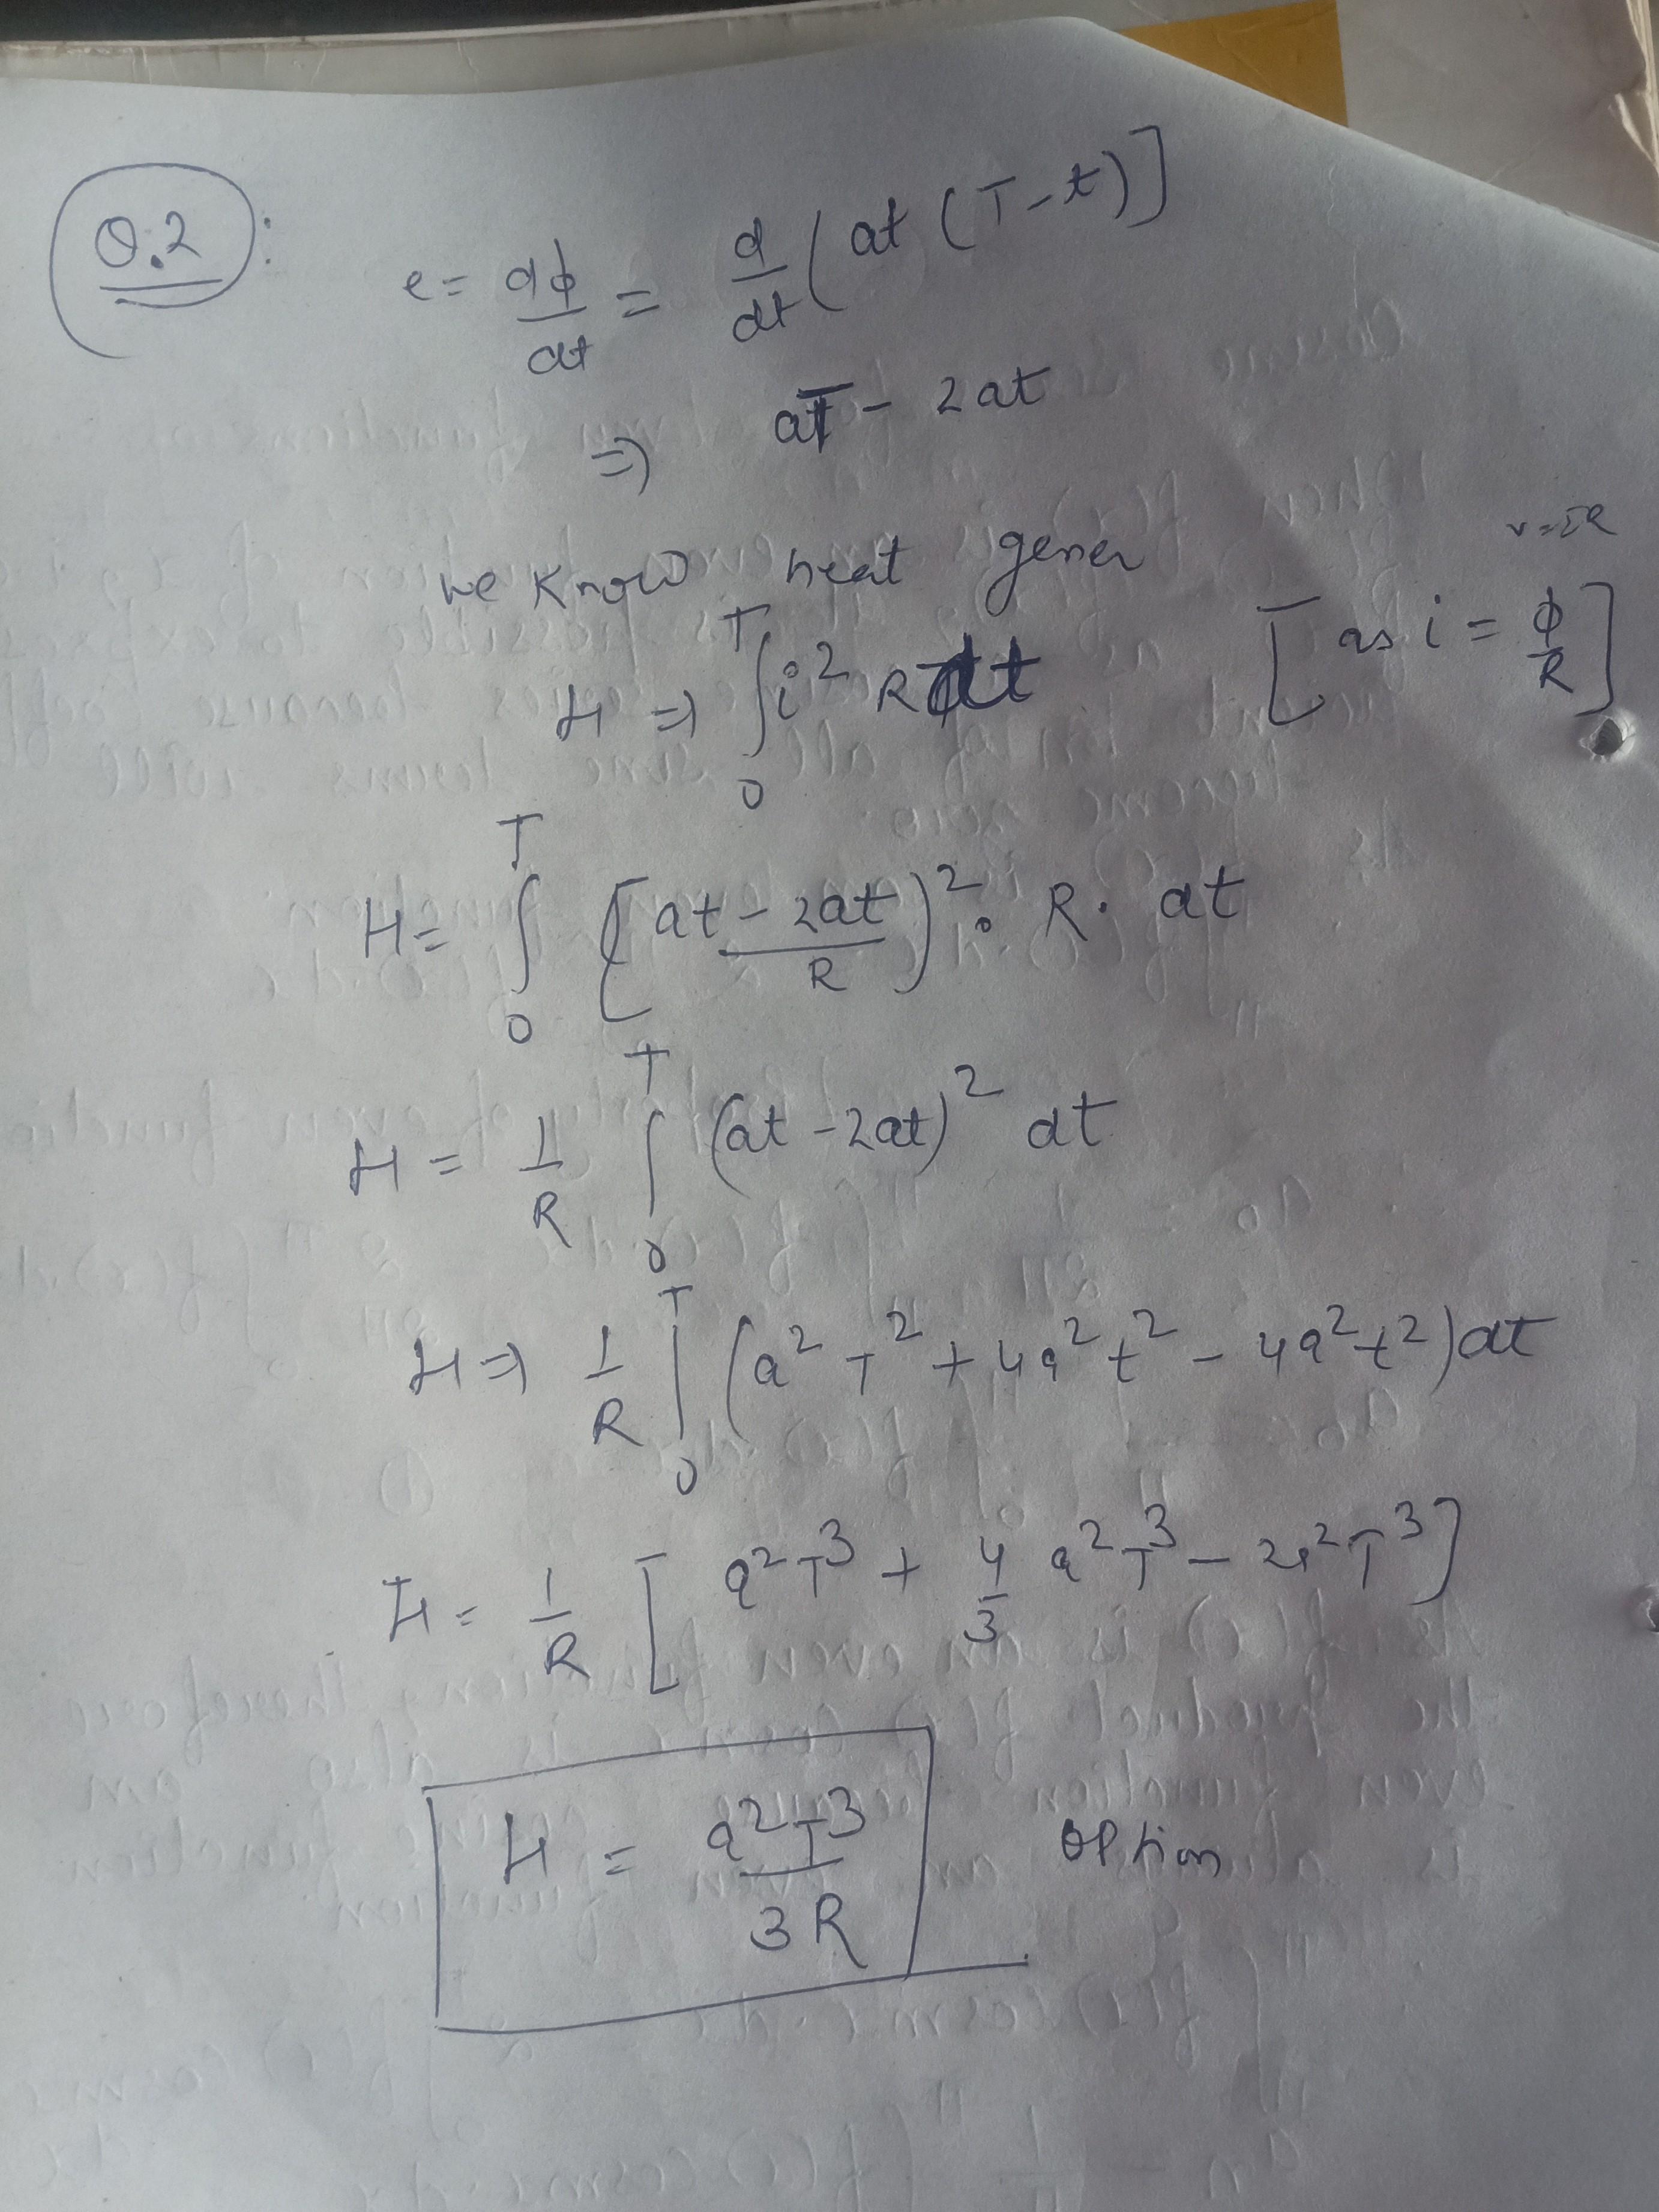 Q.2 :
e = dϕ/dt = d/dt (at (T-t)]
=> aT - 2at
we know heat gener
v=IR
H => ∫₀ᵀ i² R dt [as i = ϕ/R]
H = ∫₀ᵀ [at - 2at/R)² . R . dt
H = 1/R ∫₀ᵀ (at - 2at)² dt
H => 1/R ∫₀ᵀ (a² T² + 4a² t² - 4a² t²) dt
H = 1/R [a²T³ + 4/3 a²T³ - 2a²T³]
H = a²T³/3R option